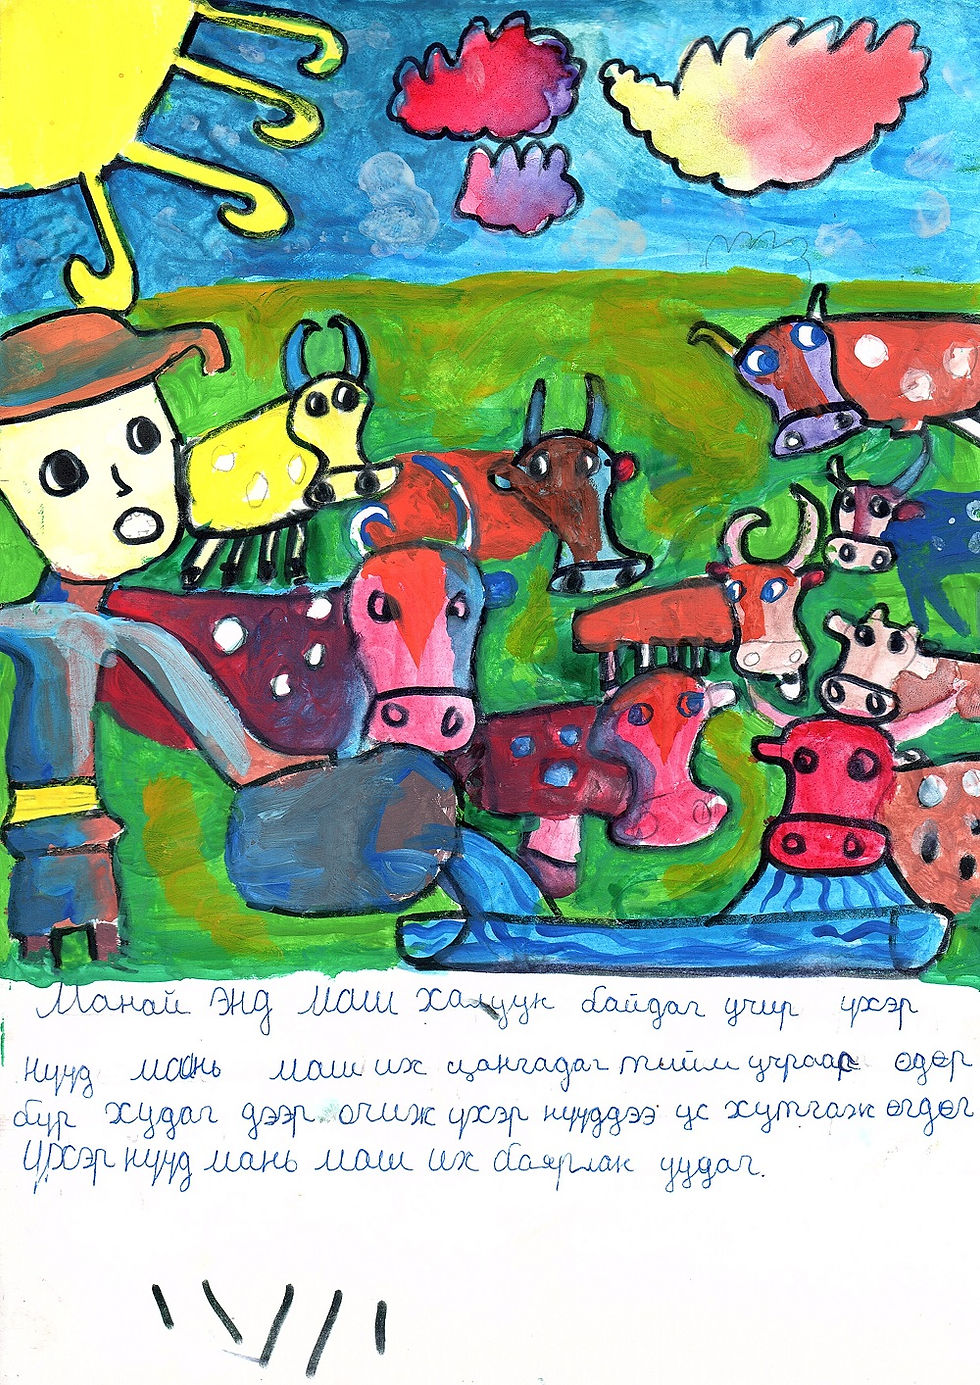 Манай энд маш халуун байдаг учир үхэр
нүүд мань маш их цангадаг тийм учраас өдөр
бүр худаг дээр очиж үхэр нүүддээ ус хутгаж өгдөг
Үхэр нүүд мань маш их баярлан уудаг.